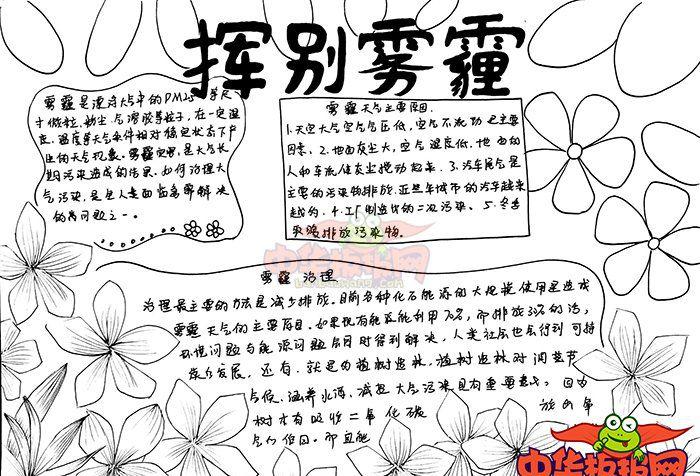 挥别雾霾
雾霾是漂浮大气中的PM2.5等尺
寸微粒、粉尘、气溶胶等粒子，在一定湿
度、温度等天气条件相对稳定状态下产
生的天气现象。雾霾实际是大气长
期污染造成的结果。如何治理大
气污染，是全人类面临急需解决
的高问题之一。
雾霾天气主要原因.
1.天空大气空气气压低，空气不流动是主要
因素。2.地面灰尘大，空气湿度低，地面的
人和车流使灰尘搅动起来。3.汽车尾气是
主要的污染物排放，近些年城市的汽车越来
越多。4.工厂制造出的二次污染。5.冬季
取暖排放污染物。
雾霾治理
治理最主要的方法是减少排放。目前各种化石能源的大规模使用是造成
雾霾天气的主要原因。如果现有能源能利用70%，即排放30%的话，
环境问题与能源问题会同时得到解决，人类社会也会得到可持
续的发展，还有，就是多植树造林，植树造林对调节
气候、涵养水源、减轻大气污染具有重要意义。因为
树木有吸收二氧化碳 放出氧
气的作用。而且能
中华板报网
中华板报网